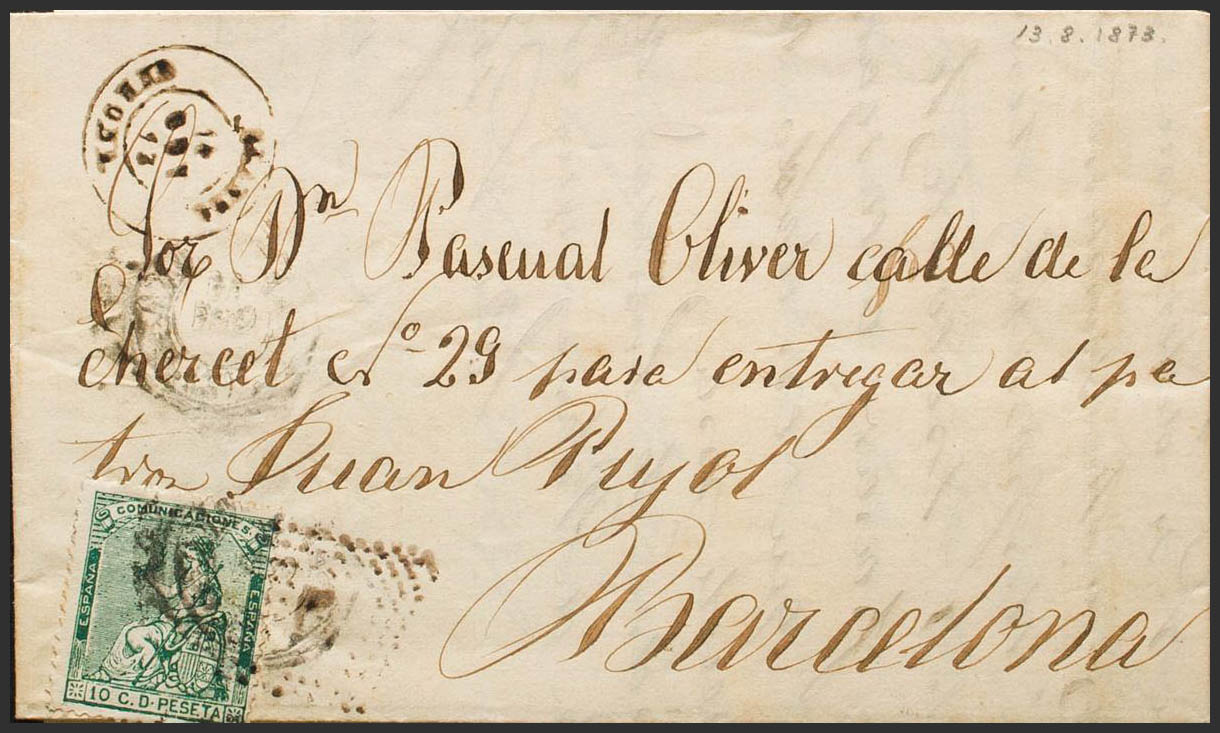 13.8.1873.
Sor Dn Pascual Oliver calle de la
chercet No 29 para entregar al pa
tron Juan Pujol
Barcelona
COMUNICACIONES
ESPAÑA
ESPAÑA
10 C. D. PESETA